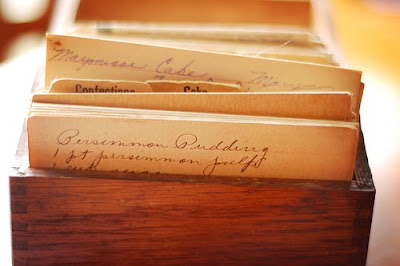 Mayonnaise Cake
Confections
Cake
Persimmon Pudding
1 pt persimmon pulp